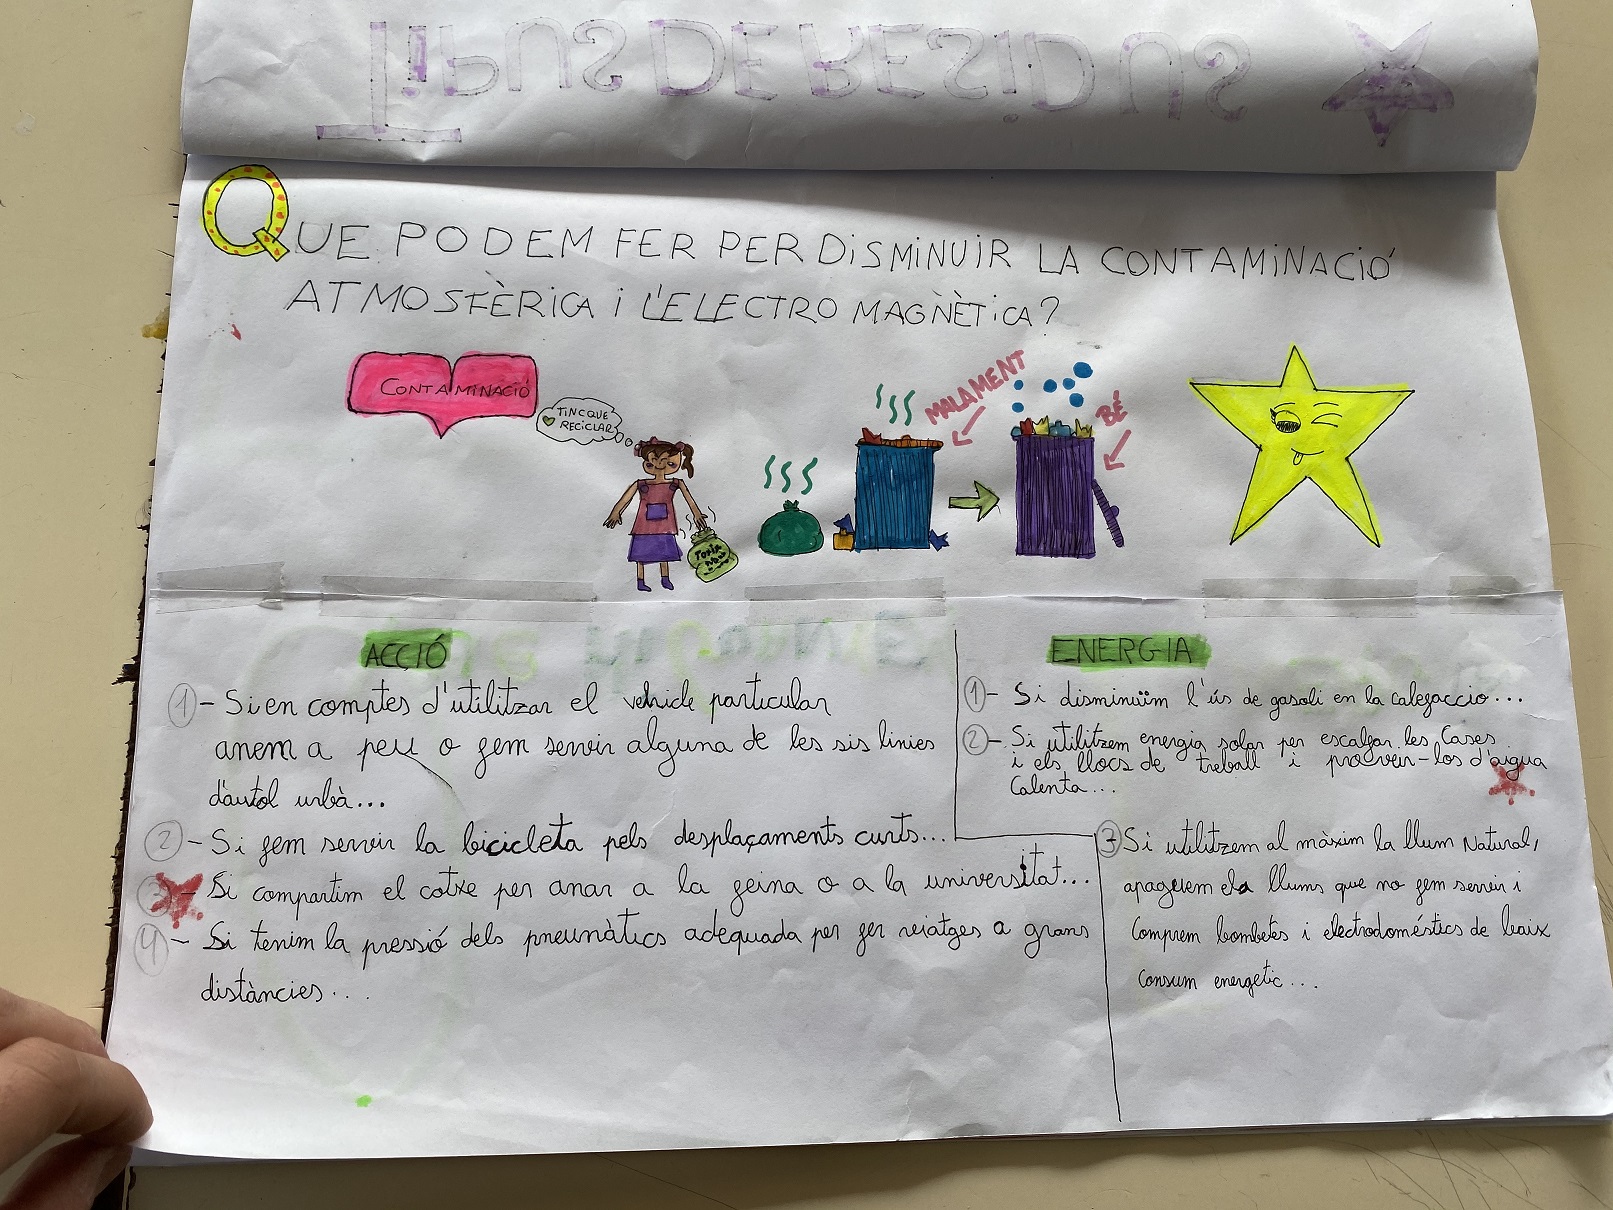 TIPUS DE RESIDUS
QUE PODEM FER PER DISMINUIR LA CONTAMINACIÓ
ATMOSFÈRICA I L'ELECTRO MAGNÈTICA?
CONTAMINACIÓ
TINC QUE
RECICLAR
MALAMENT
BÉ
ACCIÓ
1- Si en comptes d'utilitzar el vehicle particular
anem a peu o fem servir alguna de les sis línies
d'autol urbà...
2- Si fem servir la bicicleta pels desplaçaments curts...
3- Si compartim el cotxe per anar a la feina o a la universitat...
4- Si tenim la pressió dels pneumàtics adequada per fer viatges a grans
distàncies...
ENERGIA
1- Si disminuïm l'ús de gasoli en la calefaccio...
2- Si utilitzem energia solar per escalfar les Cases
i els llocs de treball i proveir-los d'aigua
Calenta...
3 Si utilitzem al màxim la llum Natural,
apaguem els llums que no fem servir i
Comprem bombetes i electrodoméstics de baix
Consum energetic...